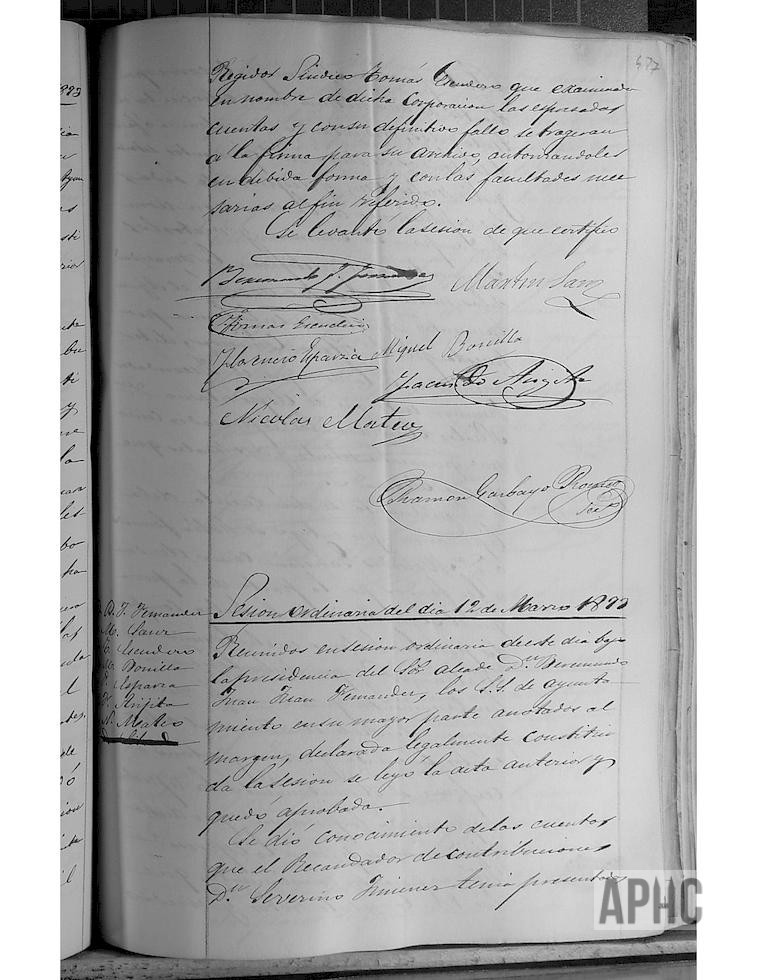 477
Regidor Sindico Tomás Escudero que examinada
en nombre de dicha Corporacion las espresadas
cuentas y con su definitivo fallo se trageran
á la firma para su archivo, autorizandoles
en debida forma y con las facultades nece
sarias al fin referido.
Se levantó la sesion de que certifico
Martin Sanz
Tomas Escudero
Florencio Esparza Miguel Bonilla
Nicolas Mateo
Ramon Garbayo
B. J. Fernandez
M. Sanz
T. Escudero
M. Bonilla
F. Esparza
N. Mateo
Sesion ordinaria del dia 12 de Marzo 1893
Reunidos en sesion ordinaria de este dia bajo
la presidencia del Sor alcade Dn Beremundo
Juan Fernandez, los S.S. de ayunta
miento en su mayor parte anotados al
margen, declarada legalmente constitui
da la sesion se leyó la acta anterior y
quedó aprobada.
Se dió conocimiento de las cuentas
que el Recaudador de contribuciones
Dn Severino Jimenez tenia presentadas
APHC